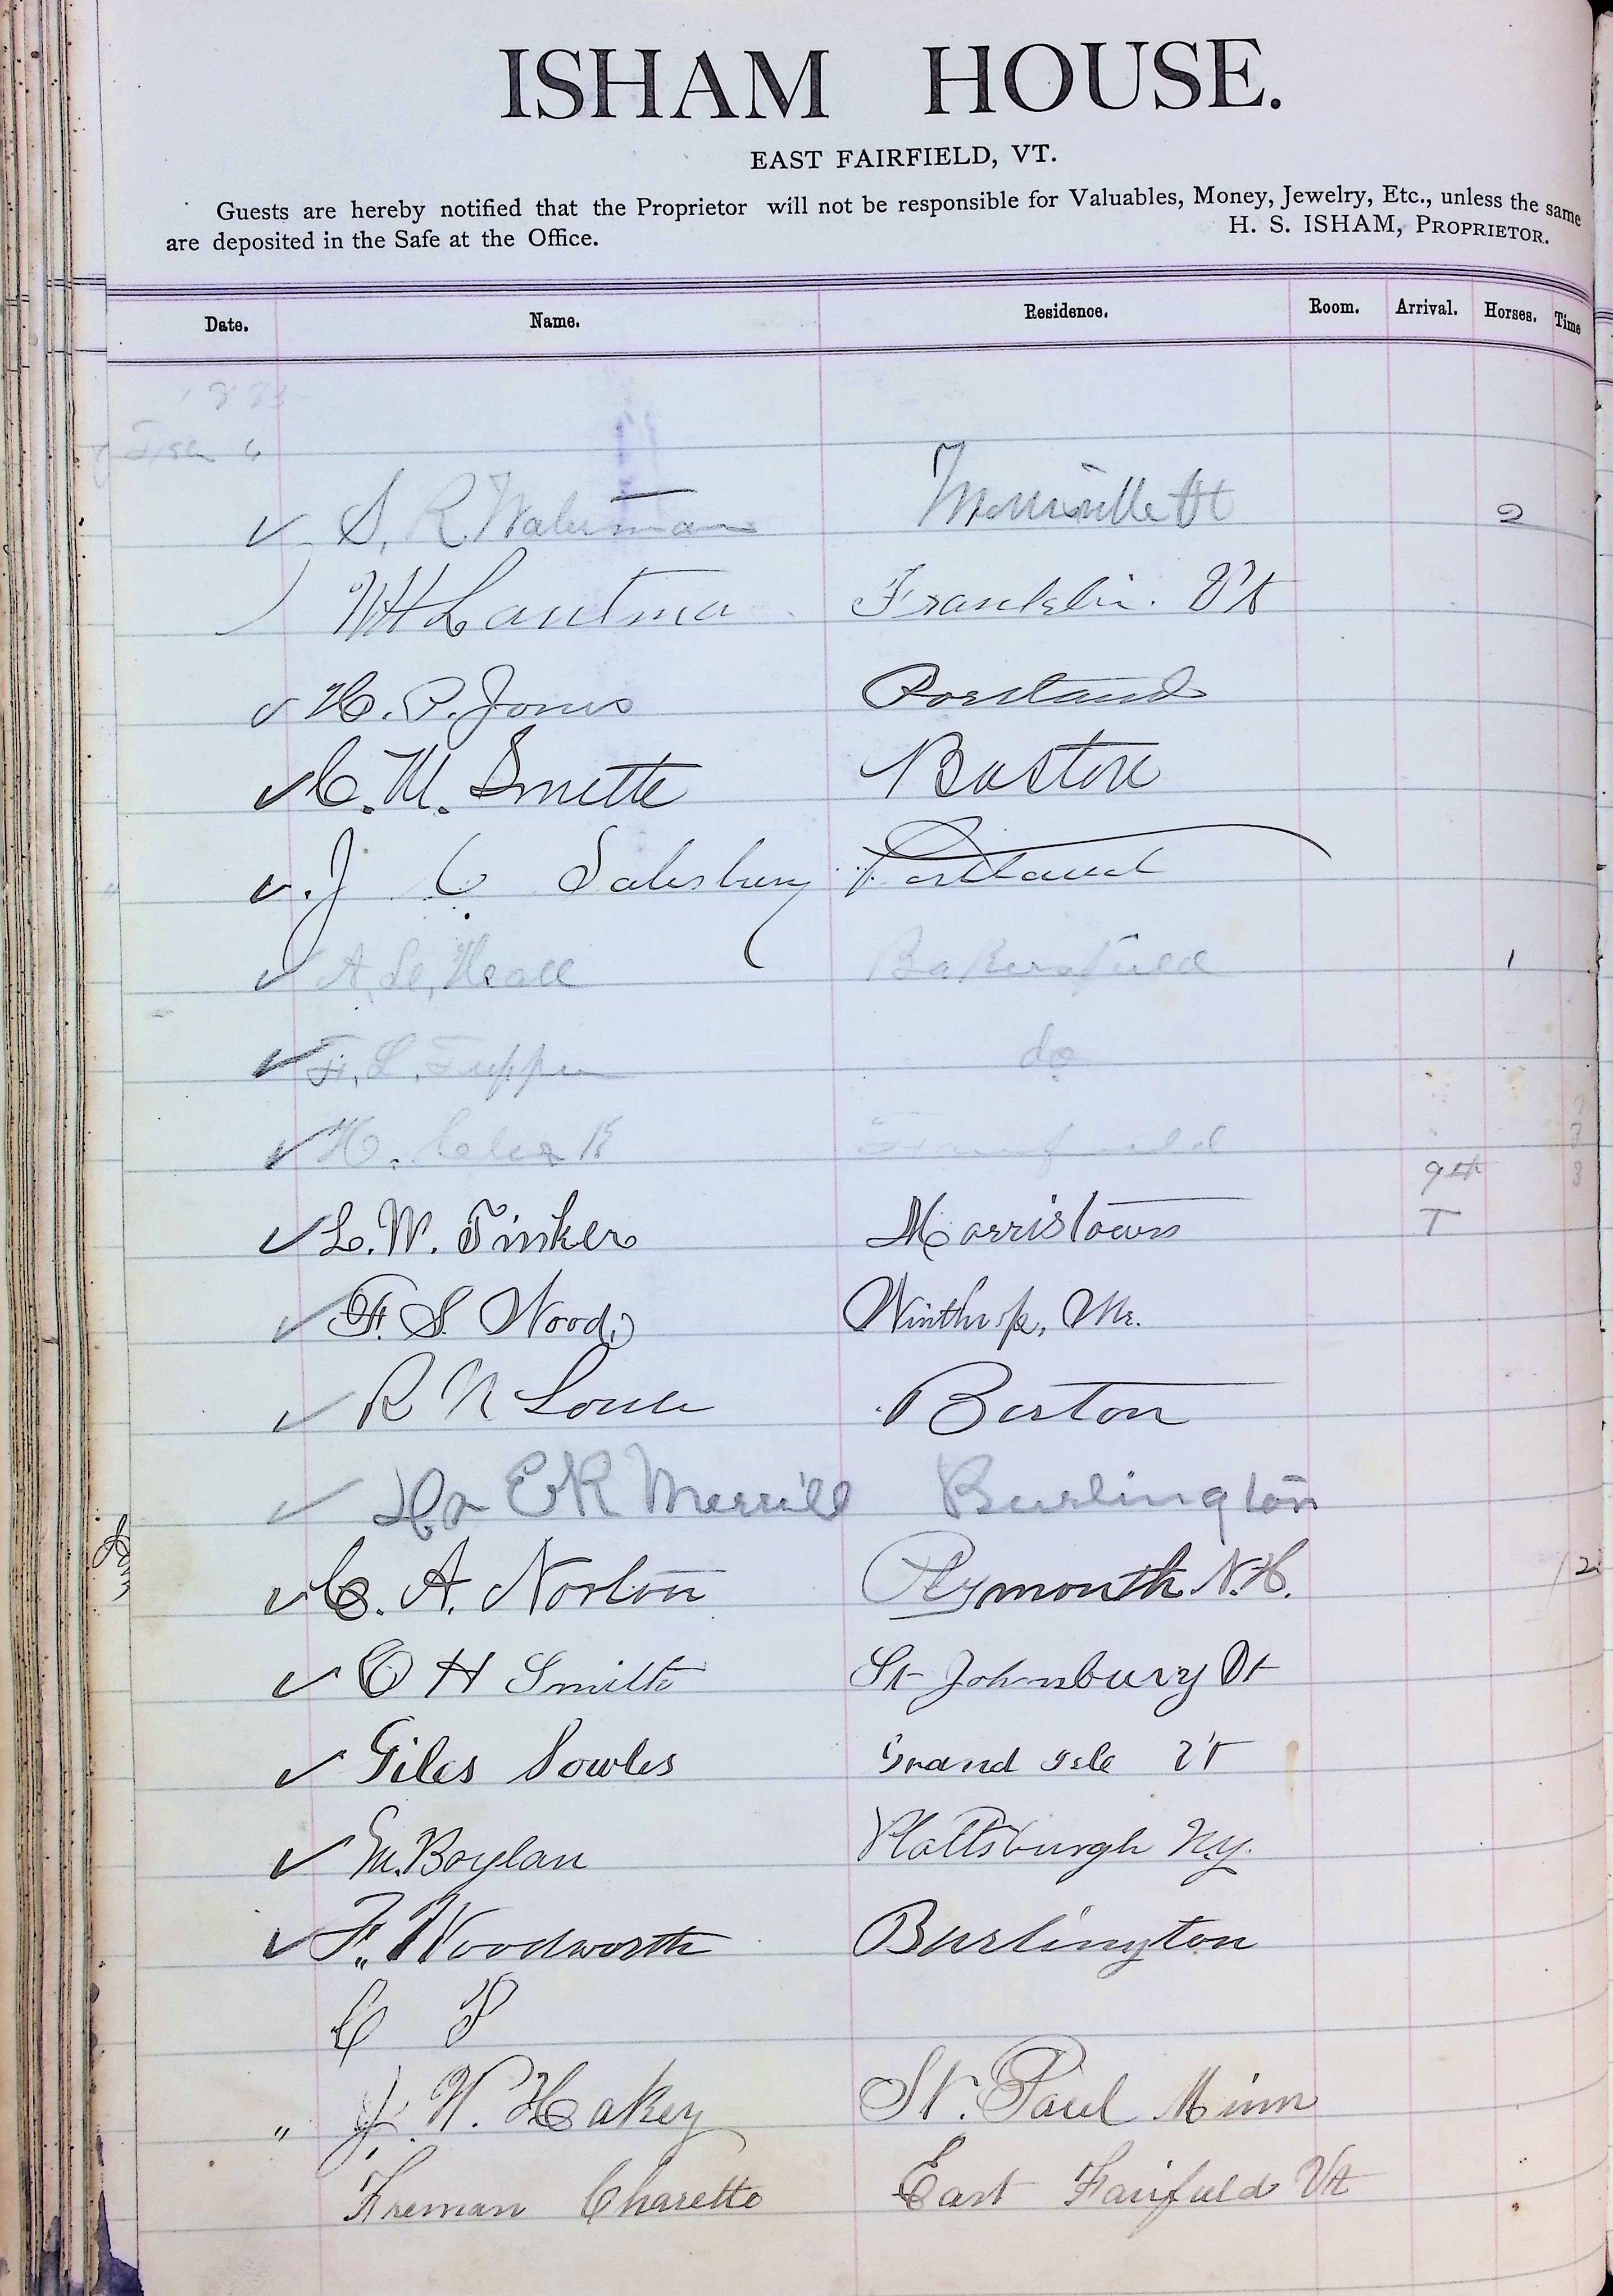 ISHAM HOUSE.
EAST FAIRFIELD, VT.
Guests are hereby notified that the Proprietor will not be responsible for Valuables, Money, Jewelry, Etc., unless the same
are deposited in the Safe at the Office.
H. S. ISHAM, PROPRIETOR.
Date. Name. Residence. Room. Arrival. Horses. Time
S. R Waterman Morrisville Vt 2
Franklin. Vt
H. P. Jones Portland
C. M. Smith Boston
J C Salesbury Portland
A. Bakersfield 1
F. L. Tupper do
H. Fairfield
L. W. Tinker Morristown T
F. S. Wood Winthrop, Me.
R N Boston
Dr E R Merrill Burlington
C. A. Norton Plymouth N. H.
O H Smith St Johnsbury Vt
Giles Sowles Grand Isle Vt
M. Boylan Plattsburgh N.y.
F. Woodworth Burlington
C P
" J. W. Hakey St. Paul Minn
Freman Charetto East Fairfield Vt